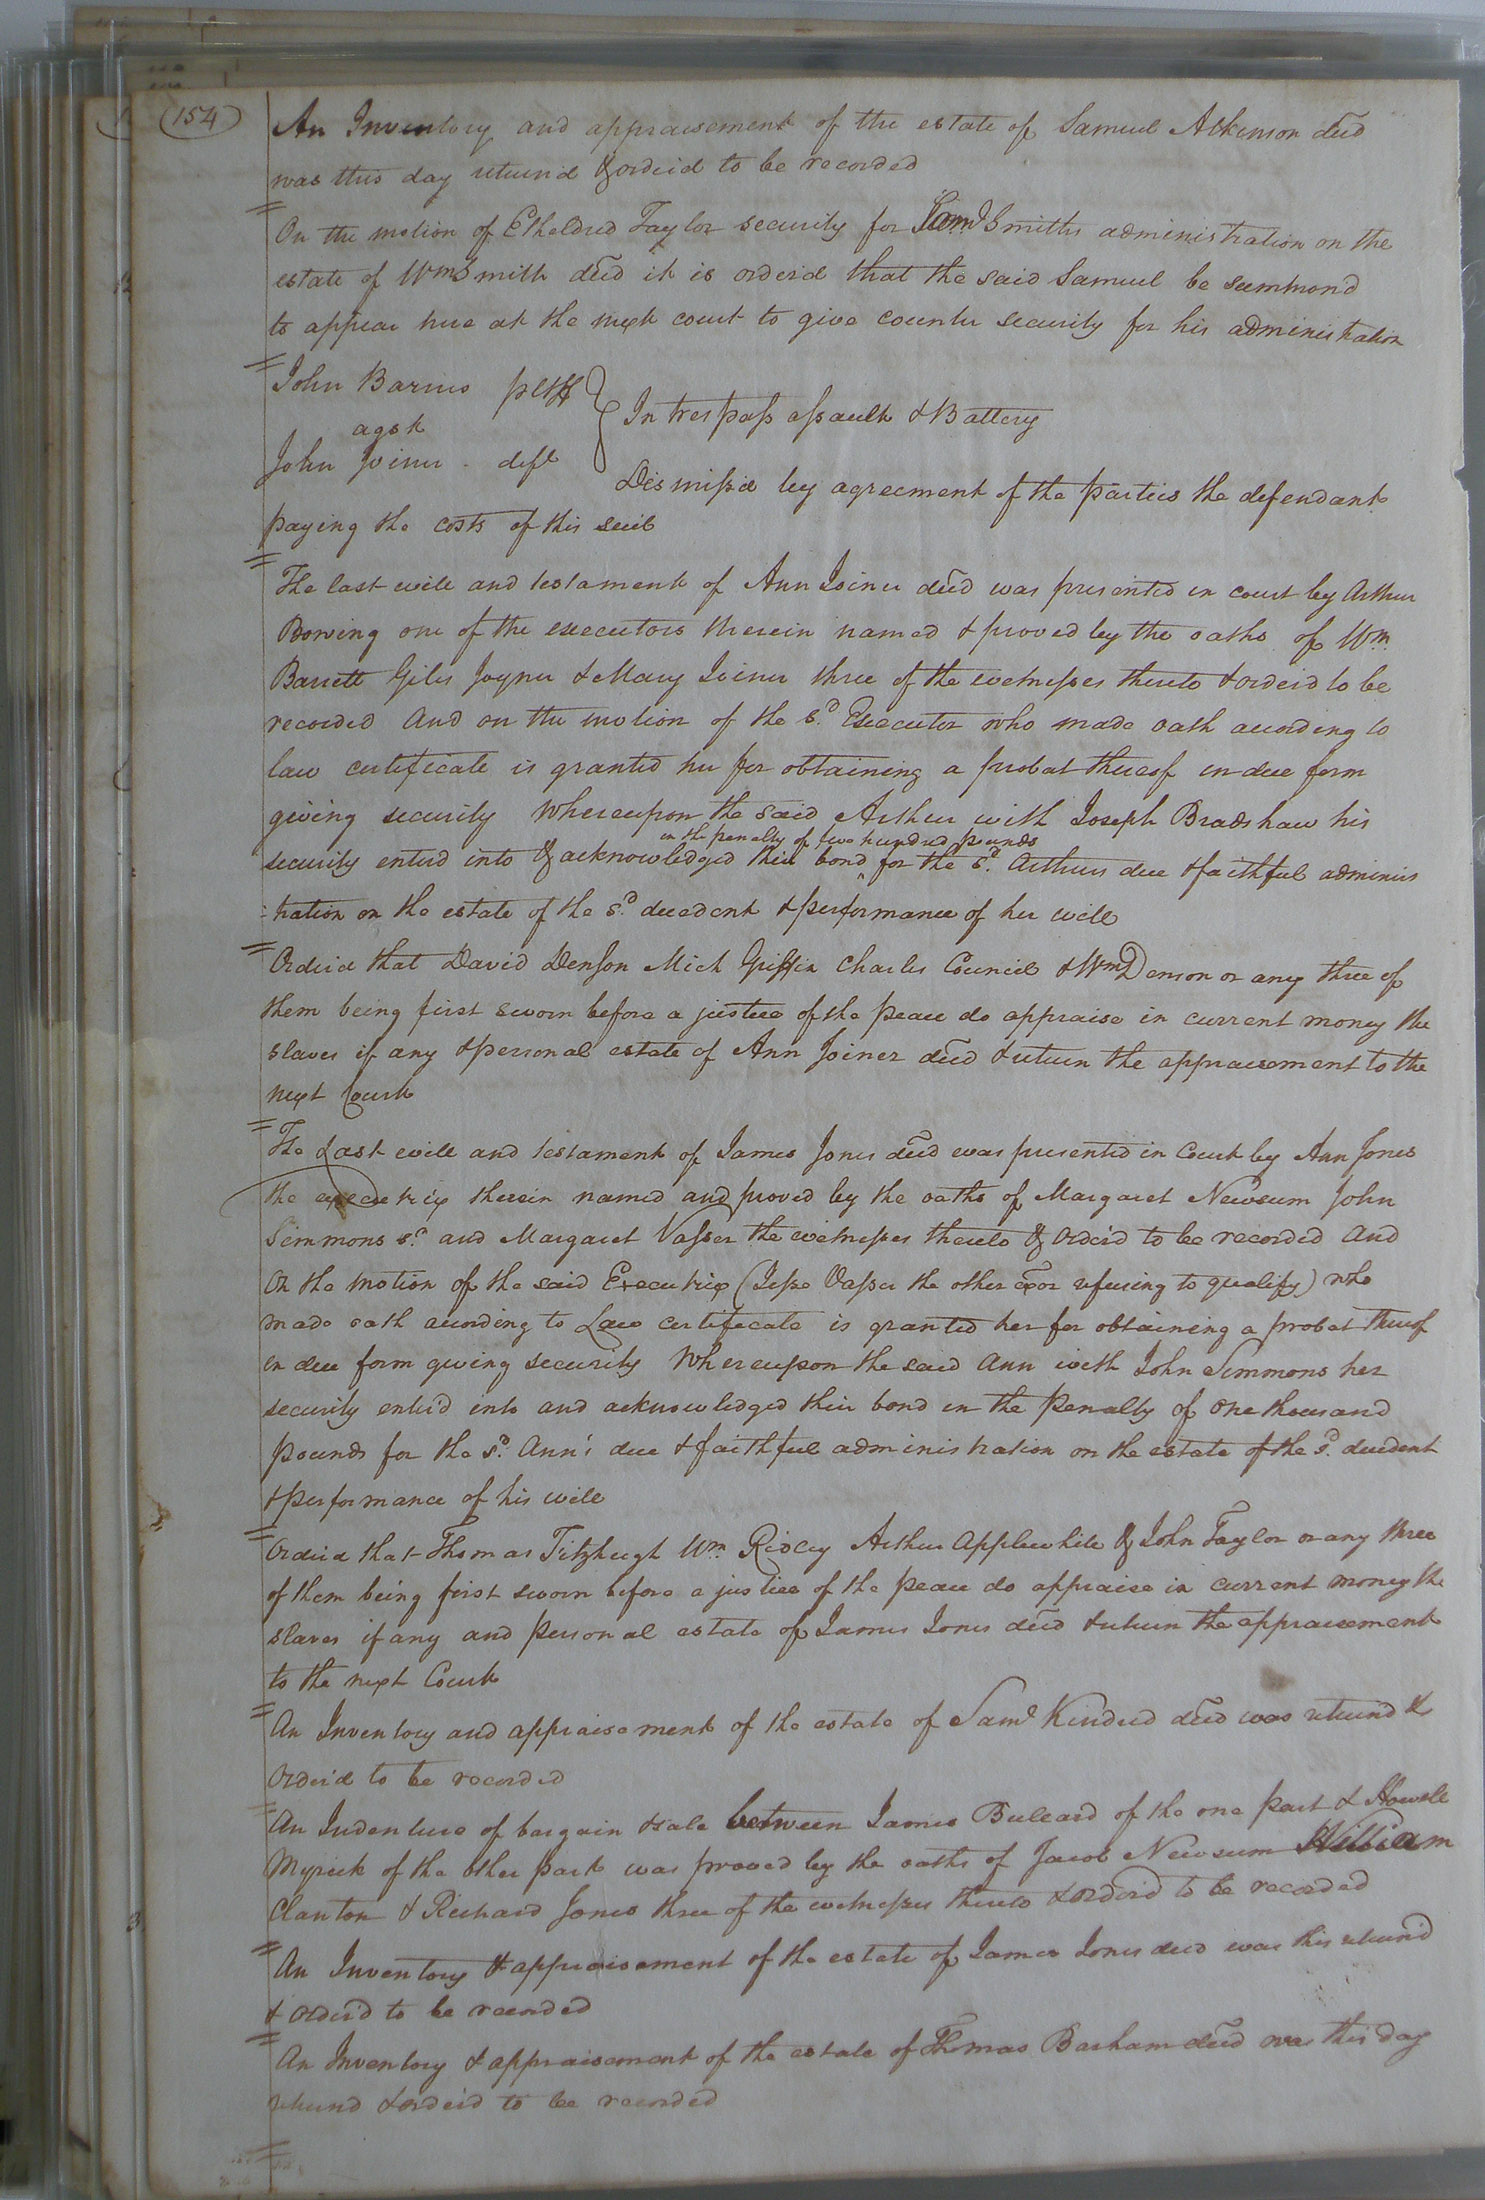 154
An Inventory and appraisement of the estate of Samuel Atkinson decd
was this day returnd & orderd to be recorded
On the motion of Etheldred Taylor security for Saml Smiths administration on the
estate of Wm Smith decd it is orderd that the said Samuel be summond
to appear here at the next court to give counter security for his administration
John Barnes pltff
agst
In trespass assault & Battery
John Joiner deft
Dismiss'd by agreement of the parties the defendant
paying the costs of this suit
The last will and testament of Ann Joiner decd was presented in court by Arthur
Bowing one of the executors therein named & proved by the oaths of Wm
Barrett Giles Joyner & Mary Joiner three of the witnesses thereto & orderd to be
recorded And on the motion of the sd Executor who made oath according to
law certificate is granted him for obtaining a probat thereof in due form
giving security Whereupon the said Arthur with Joseph Bradshaw his
in the penalty of two hundred pounds
security enterd into & acknowledged their bond for the sd Arthurs due & faithful adminis
tration on the estate of the sd decedent & performance of her will
Orderd that David Denson Mich Griffin Charles Council & Wm Denson or any three of
them being first sworn before a justice of the peace do appraise in current money the
slaves if any & personal estate of Ann Joiner decd & return the appraisement to the
next Court
The Last will and testament of James Jones decd was presented in Court by Ann Jones
the executrix therein named and proved by the oaths of Margaret Newsum John
Simmons sr and Margaret Vasser the witnesses thereto & Order'd to be recorded And
On the motion of the said Executrix (Jesse Vasser the other exor refusing to qualify) who
made oath according to Law certificate is granted her for obtaining a probat thereof
in due form giving security Whereupon the said Ann with John Simmons her
security enter'd into and acknowledged their bond in the Penalty of One thousand
pounds for the sd Ann's due & faithful administration on the estate of the sd decedent
& performance of his will
Orderd that Thomas Fitzhugh Wm Ridley Arthur Applewhite & John Taylor or any three
of them being first sworn before a justice of the peace do appraise in current money the
slaves if any and personal estate of James Jones decd & return the appraisement
to the next Court
An Inventory and appraisement of the estate of Saml Kindred decd was returnd &
Order'd to be recorded
An Indenture of bargain & sale between James Bullard of the one part & Howell
Myrick of the other part was proved by the oaths of Jacob Newsum William
Clanton & Richard Jones three of the witnesses thereto & order'd to be recorded
An Inventory & appraisement of the estate of James Jones decd was this returnd
& order'd to be recorded
An Inventory & appraisement of the estate of Thomas Barham decd was this day
returnd & order'd to be recorded